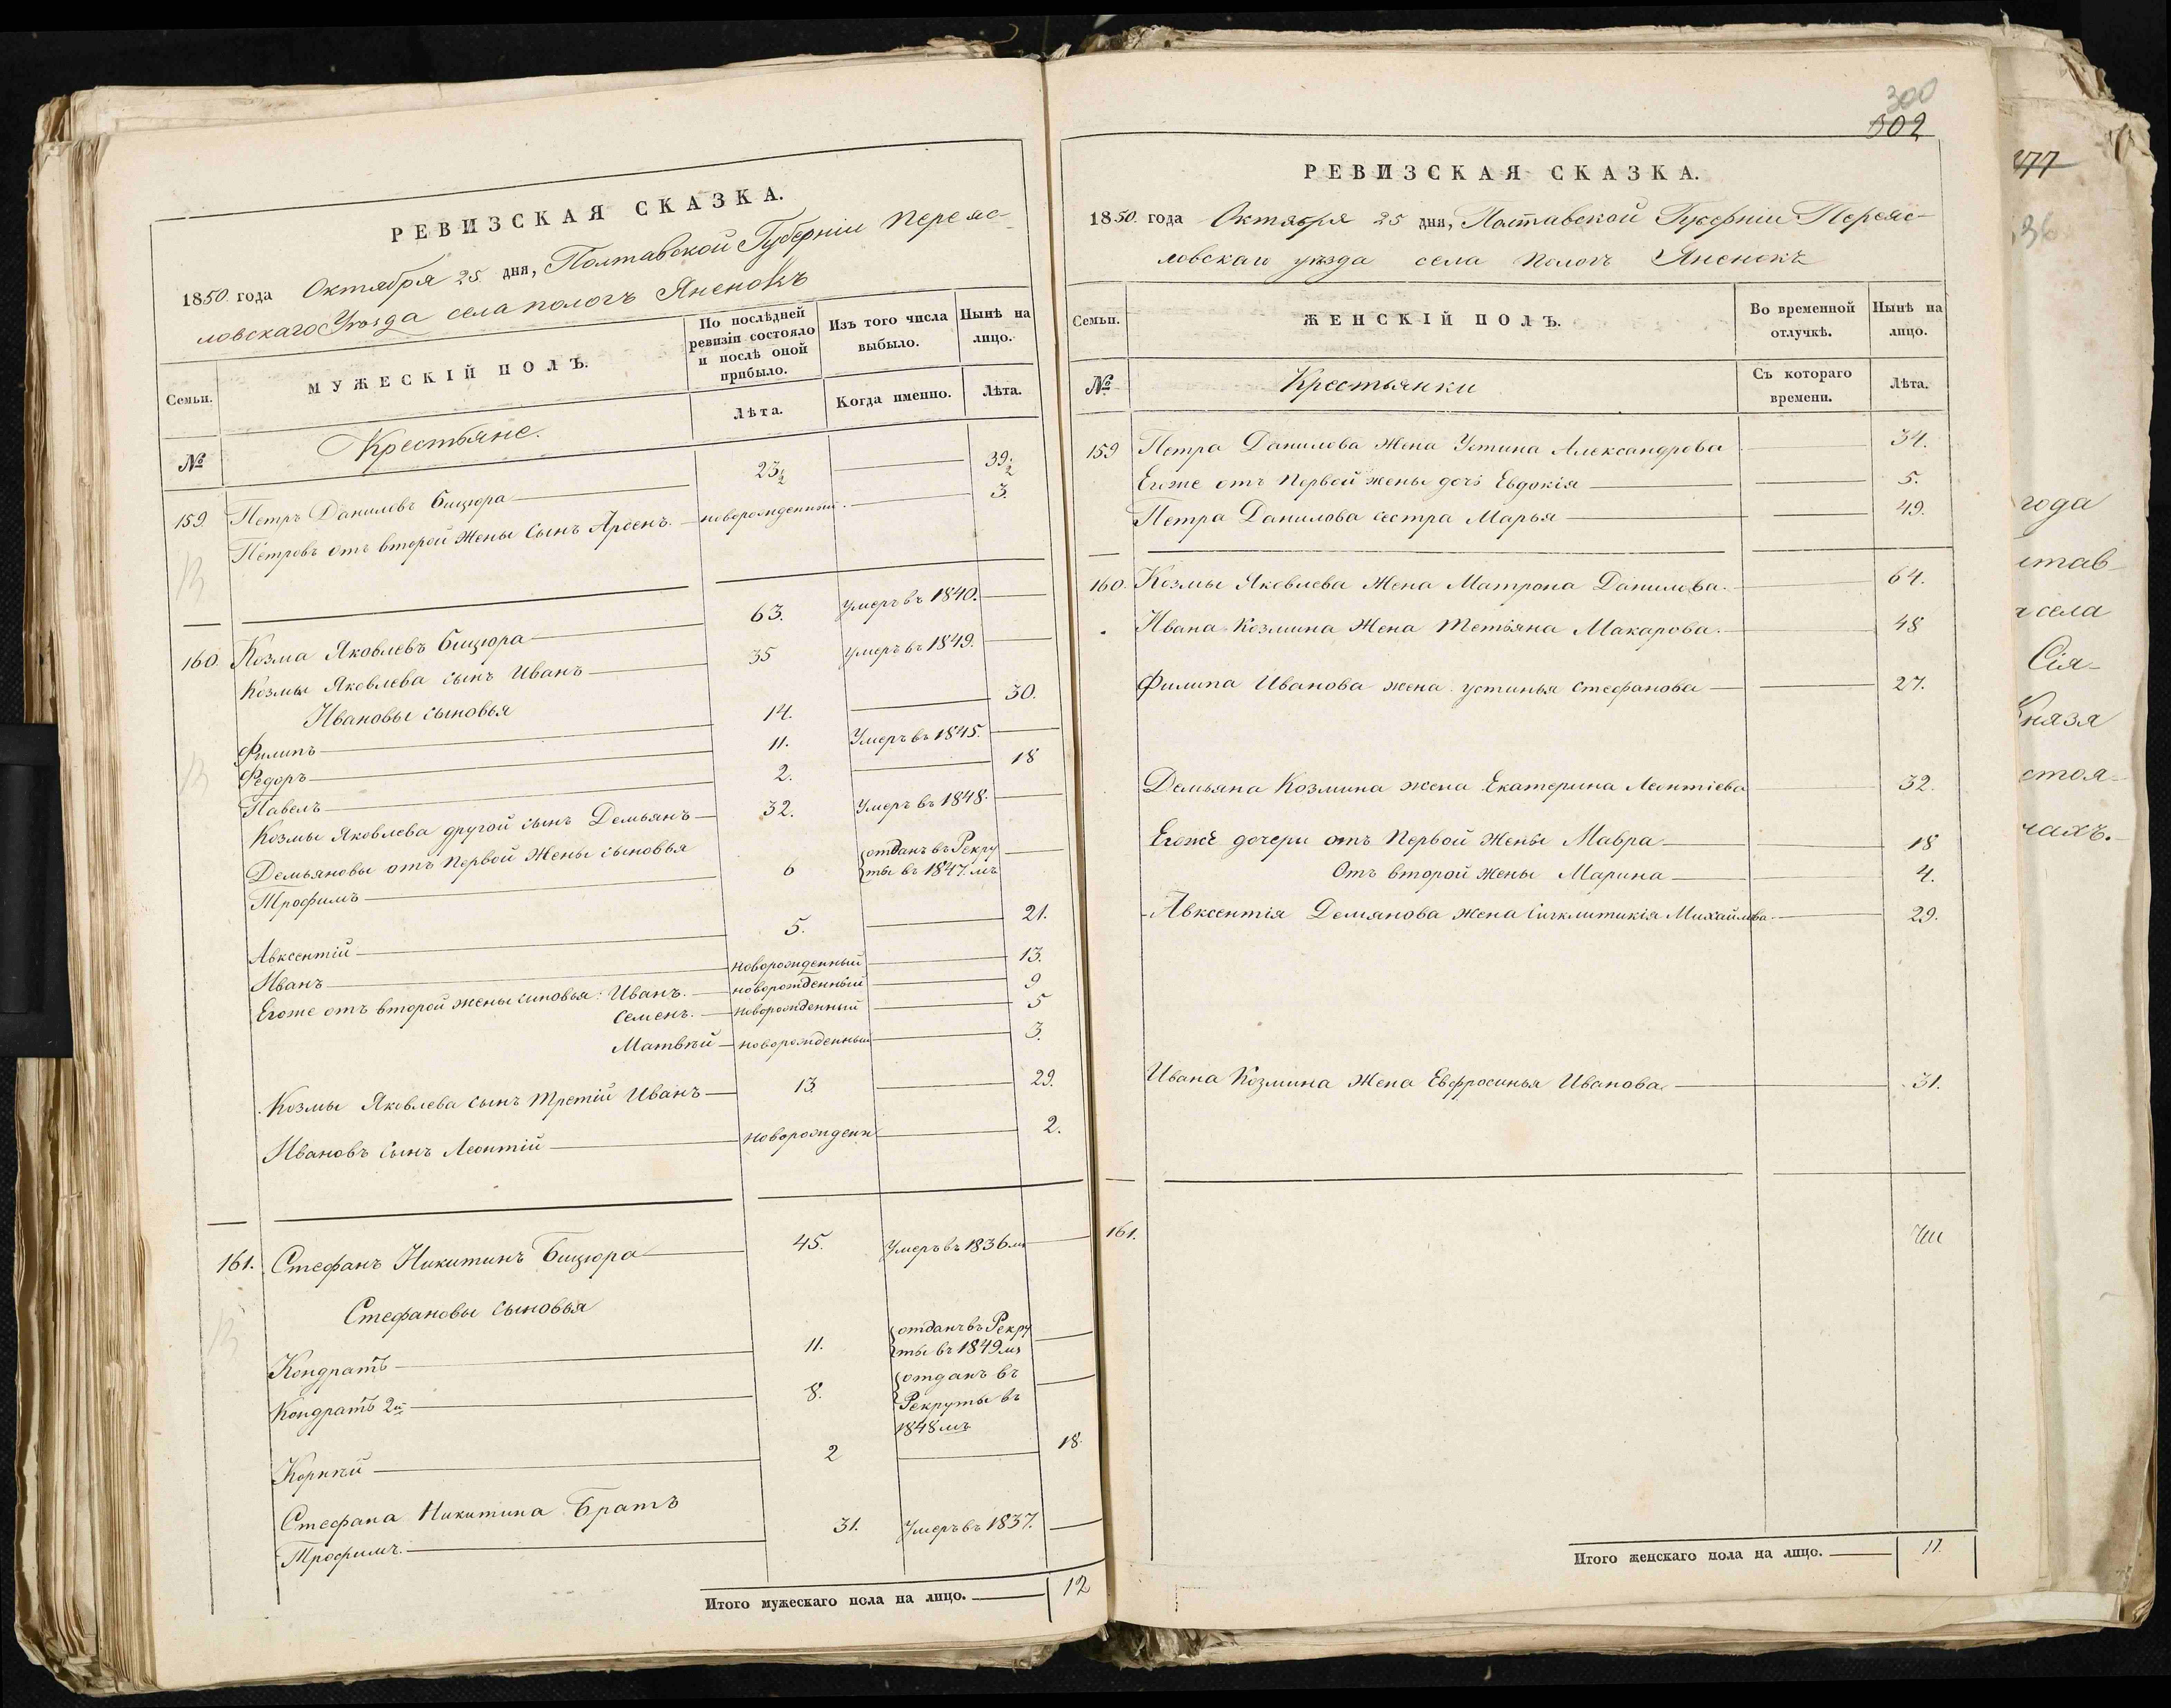 РЕВИЗСКАЯ СКАЗКА.
1850 года Октября 25 дня, Полтавской Губерніи Переяс-
ловскаго Уѣзда села пологъ Яненокъ
Семьи.
МУЖЕСКІЙ ПОЛЪ.
По послѣдней ревизіи состояло и послѣ оной прибыло.
Изъ того числа выбыло.
Нынѣ на лицо.
№
Крестьяне.
Лѣта.
Когда именно.
Лѣта.
159. Петръ Даниловъ Бицюра 23½ 39½
Петровъ отъ второй Жены Сынъ Арсенъ. новорожденный. 3.
160. Козма Яковлевъ Бицюра 63. Умеръ въ 1840.
Козмы Яковлева сынъ Иванъ 35 умеръ въ 1849.
Ивановы сыновья
Филипъ 14. 30.
Федоръ 11. Умеръ въ 1845.
Павелъ 2. 18
Козмы Яковлева другой сынъ Демьянъ 32. Умеръ въ 1848.
Демьяновы отъ Первой Жены сыновья
Трофимъ 6 отданъ въ Рекру
ты въ 1847.мъ
Авксентій 5. 21.
Иванъ новорожденный 13.
Егоже отъ второй жены синовья: Иванъ. новорожденный 9
Семенъ. новорожденный 5
Матвѣй новорожденный 3.
Козмы Яковлева сынъ третій Иванъ 13 29.
Ивановъ сынъ Леонтій новорожденн 2.
161. Стефанъ Никитинъ Бицюра 45. Умеръ въ 1836 м
Стефановы сыновья
Кондратъ 11. отданъ въ Рекру
ты въ 1849 мъ
Кондратъ 2й 8. отданъ въ
Рекруты въ
1848 мъ
Корнѣй 2 18.
Стефана Никитина Братъ
Трофимъ. 31. Умеръ въ 1837.
Итого мужескаго пола на лицо. 12
300
302
РЕВИЗСКАЯ СКАЗКА.
1850 года Октября 25 дня, Полтавской Губерніи Переяс-
ловскаго уѣзда села Пологъ Яненокъ
Семьи.
ЖЕНСКІЙ ПОЛЪ.
Во временной отлучкѣ.
Нынѣ на лицо.
№
Крестьянки
Съ котораго времени.
Лѣта.
159 Петра Данилова Жена Устина Александрова 34.
Егоже отъ Первой жены дочь Евдокія 5.
Петра Данилова сестра Марья 49.
160. Козмы Яковлева Жена Матрона Данилова. 64.
Ивана Козмина Жена Тетьяна Макарова. 48
Филипа Иванова жена устинья Стефанова 27.
Демьяна Козмина жена Екатерина Леонтіева 32.
Егоже дочери отъ Первой Жены Мавра 18
Отъ второй Жены Марина 4.
Авксентія Демянова жена Сигклитикія Михайлова 29.
Ивана Козмина Жена Евфросинья Иванова 31.
161.
Итого женскаго пола на лицо. 11.
277
года
села
Сія-
Князя
стоя-
чахъ.